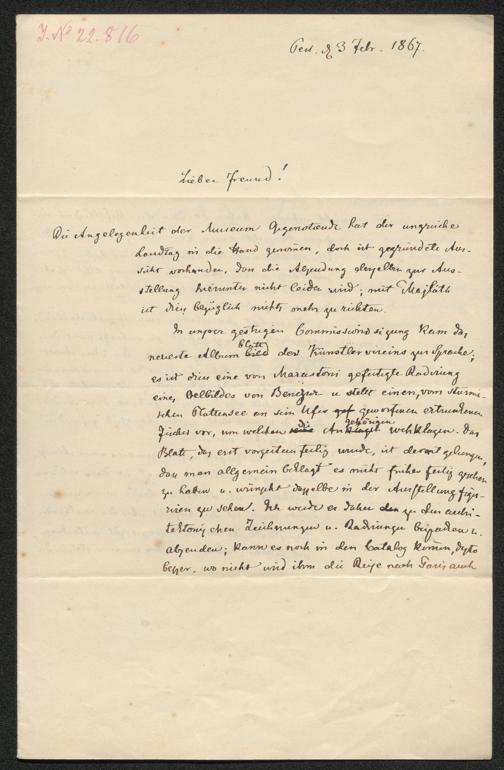 J. No 22.816
Pest, d 3 Febr. 1867.
Lieber Freund!
Die Angelegenheit der Museum Gegenstände hat der ungrische
Landtag in die Hand genommen, doch ist gegründete Aus-
sicht vorhanden, dass die Absendung derselben zur Aus-
stellung hierunter nicht leiden wird; mit Majlath
ist diesbezüglich nichts mehr zu richten.
In unserer gestrigen Commissionssizung kam das
neueste Album bild blatt des Künstlervereins zur Sprache;
es ist dies eine von Marastoni gefertigte Radirung
eines Oelbildes von Benczur u. stellt einen, vom stürmi-
schen Plattensee an sein Ufer geworfenen ertrunkenen
Fischer vor, um welchen seine die Angehörigen wehklagen. Das
Blatt, das erst vorgestern fertig wurde, ist derart gelungen,
dass man allgemein beklagt es nicht früher fertig gesehen
zu haben u. wünscht dasselbe in der Ausstellung figu-
riren zu sehen. Ich werde es daher den zu den archi-
tektonischen Zeichnungen u. Radirungen beipacken u.
absenden; kann es noch in den Catalog kommen, desto
besser, wo nicht wird ihm die Reise nach Paris auch